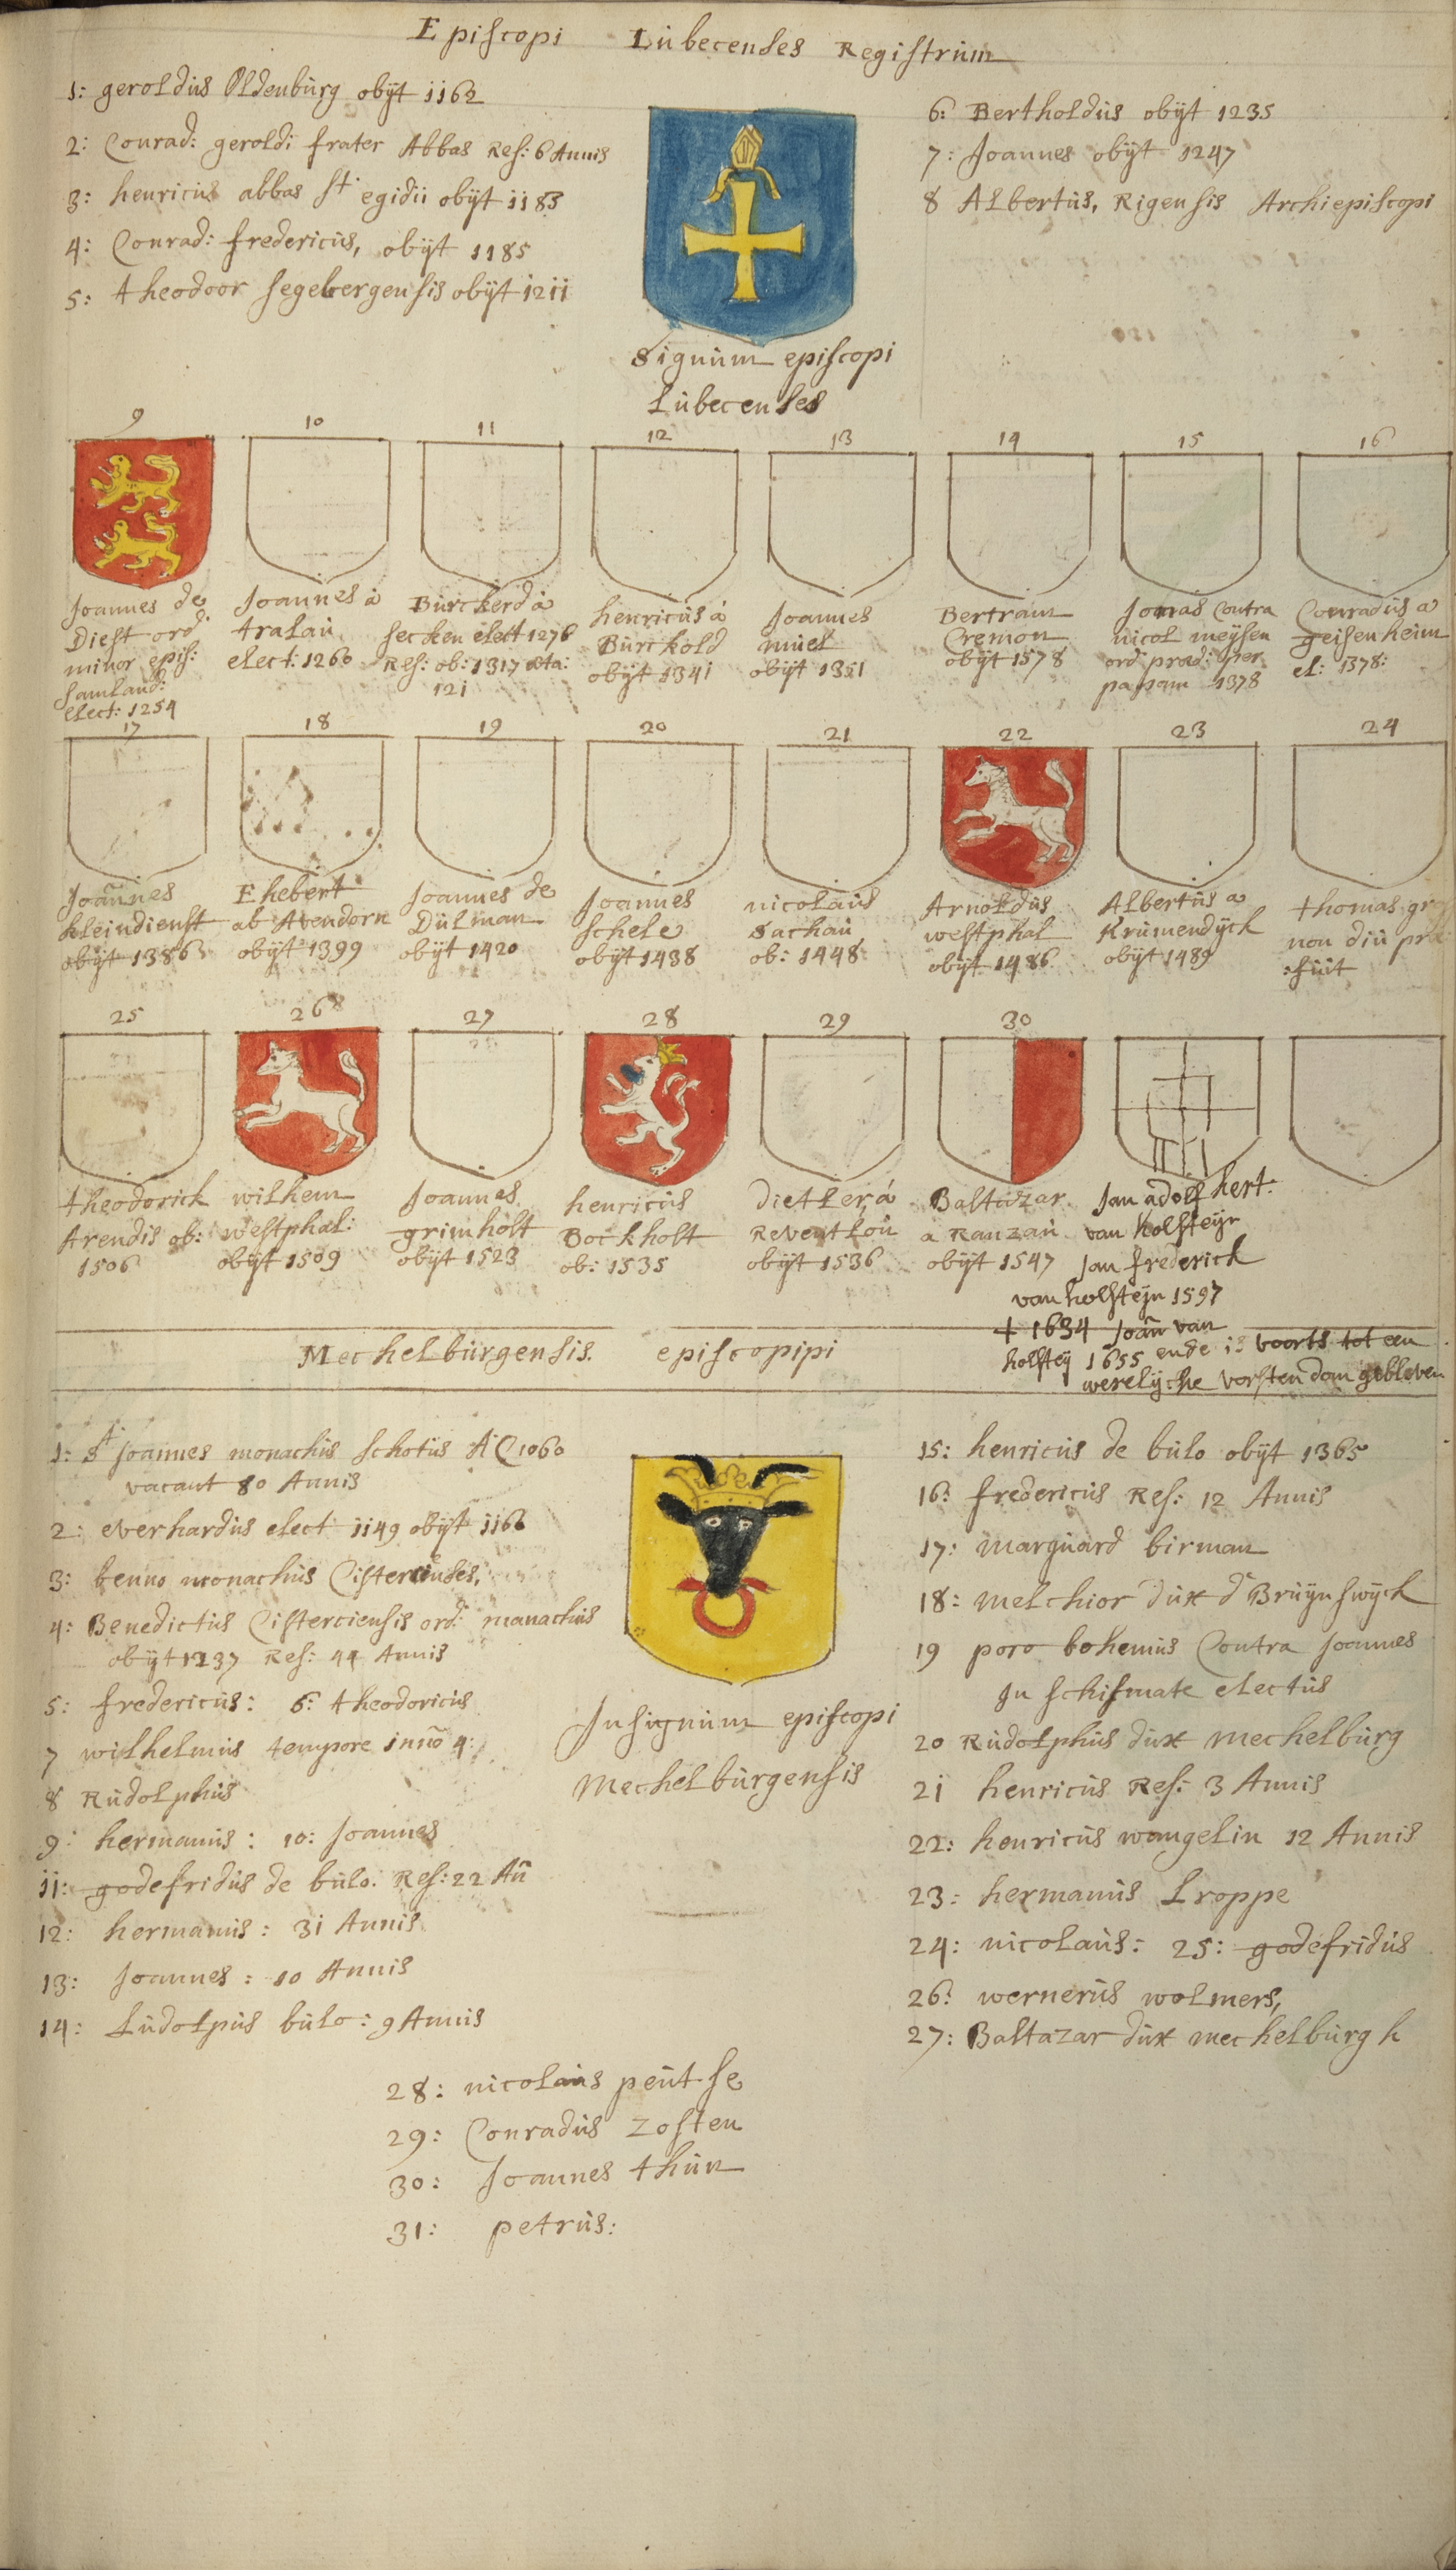 Episcopi Lubecenses Registrum
1: geroldus Oldenburg obÿt 1162
2: Conrad: geroldi frater Abbas Res: 6 Annis
3: henricus abbas St egidii obÿt 1183
4: Conrad: fredericus, obÿt 1185
5: theodoor segebergensis obÿt 1211
6: Bertholdus obÿt 1235
7: Joannes obÿt 1247
8 Albertus, Rigensis Archiepiscopi
Signum episcopi
Lubecenses
9
10
11
12
13
14
15
16
Joannes de
Diest ord
minor epis:
samland:
elect: 1254
Joannes à
tralau
elect: 1260
Burckerd à
secken elect 1276
Res: ob: 1317 æta:
121
henricus à
Burckold
obÿt 1341
Joannes
muel
obÿt 1351
Bertram
Cremon
obÿt 1578
Jonas Contra
nicol meÿsen
ord præd: per
papam 1378
Conradus a
geisenheim
el: 1378:
17
18
19
20
21
22
23
24
Joannes
kleindienst
obÿt 1386
Ehebert
ab Avendorn
obÿt 1399
Joannes de
Dulman
obÿt 1420
Joannes
schele
obÿt 1438
nicolaus
Sachau
ob: 1448
Arnoldus
westphal
obÿt 1486
Albertus a
Krumendÿck
obÿt 1489
thomas
non diu
:fuit
25
26
27
28
29
30
theodorick
Arendis ob:
1506
wilhem
westphal:
obÿt 1509
Joannes
grimholt
obÿt 1523
henricus
Bockholt
ob: 1535
Dietler, à
Reventlou
obÿt 1536
Baltazar
a Ranzau
obÿt 1547
Jan adolf hert.
van holsteÿn
Jan frederick
van holsteÿn 1597
+ 1634 Joan van
holsteÿ 1655 ende is voorts tot een
werelÿche vorstendom gebleven
Mechelburgensis. episcopipi
1: St Joannes monachus schotus A C 1060
vacant 80 Annis
2: everhardus elect 1149 obÿt 1166
3: benno monachus Cistercienses,
4: Benedictus Cisterciensis ord: manachus
obÿt 1237 Res: 44 Annis
5: fredericus: 6: theodoricus
7 wilhelmus tempore inno 4:
8 Rudolphus
9: hermanus: 10: Joannes
11: godefridus de bulo. Res: 22 An
12: hermanus: 31 Annis
13: Joannes: 10 Annis
14: Ludolpus bulo: 9 Annis
Insignium episcopi
Mechelburgensis
15: henricus de bulo obÿt 1365
16: fredericus Res: 12 Annis
17: marquard birman
18: melchior dux d Bruÿnswÿck
19 poro bohemus Contra Joannes
In schismate electus
20 Rudolphus dux mechelburg
21 henricus Res: 3 Annis
22: henricus wangelin 12 Annis
23: hermanus Lroppe
24: nicolaus: 25: godefridus
26: wernerus wolmers,
27: Baltazar dux mechelburg h
28: nicolaus peutse
29: Conradus zosten
30: Joannes thun
31: petrus: